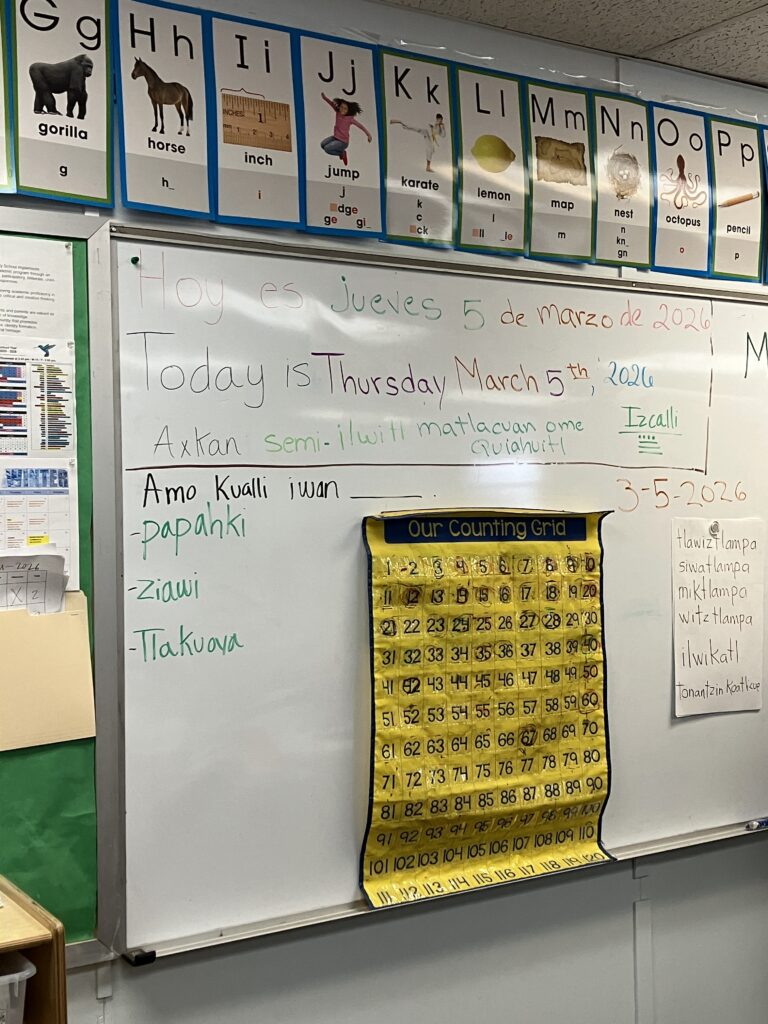 G g
gorilla
g
H h
horse
h_
I i
INCHES 1
inch
i
J j
jump
j
dge
ge gi_
K k
karate
k
c
ck
L l
lemon
l
ll _le
M m
map
m
N n
nest
n
kn_
gn
O o
octopus
o
P p
pencil
p
Hoy es jueves 5 de marzo de 2026
Today is Thursday March 5th, 2026
Axkan semi-ilwitl matlacuan ome Quiahuitl
Izcalli
M
Amo Kualli iwan ____.
3-5-2026
-papahki
-ziawi
-Tlakuaya
WINTER
Our Counting Grid
1 2 3 4 5 6 7 8 9 10
11 12 13 14 15 16 17 18 19 20
21 22 23 24 25 26 27 28 29 30
31 32 33 34 35 36 37 38 39 40
41 42 43 44 45 46 47 48 49 50
51 52 53 54 55 56 57 58 59 60
61 62 63 64 65 66 67 68 69 70
71 72 73 74 75 76 77 78 79 80
81 82 83 84 85 86 87 88 89 90
91 92 93 94 95 96 97 98 99 100
101 102 103 104 105 106 107 108 109 110
111 112 113 114 115 116 117 118 119 120
tlawiztlampa
siwatlampa
miktlampa
witztlampa
ilwikatl
Tonantzin Koatlicue